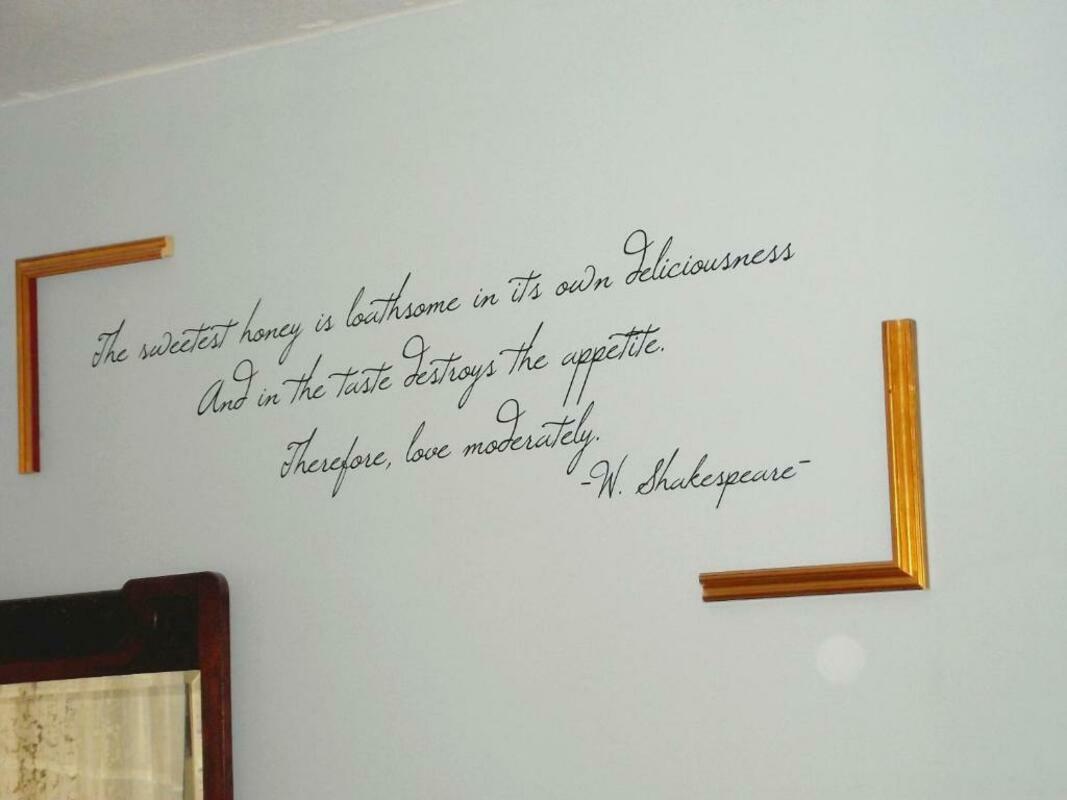 The sweetest honey is loathsome in its own deliciousness
And in the taste destroys the appetite.
Therefore, love moderately.
-W. Shakespeare-